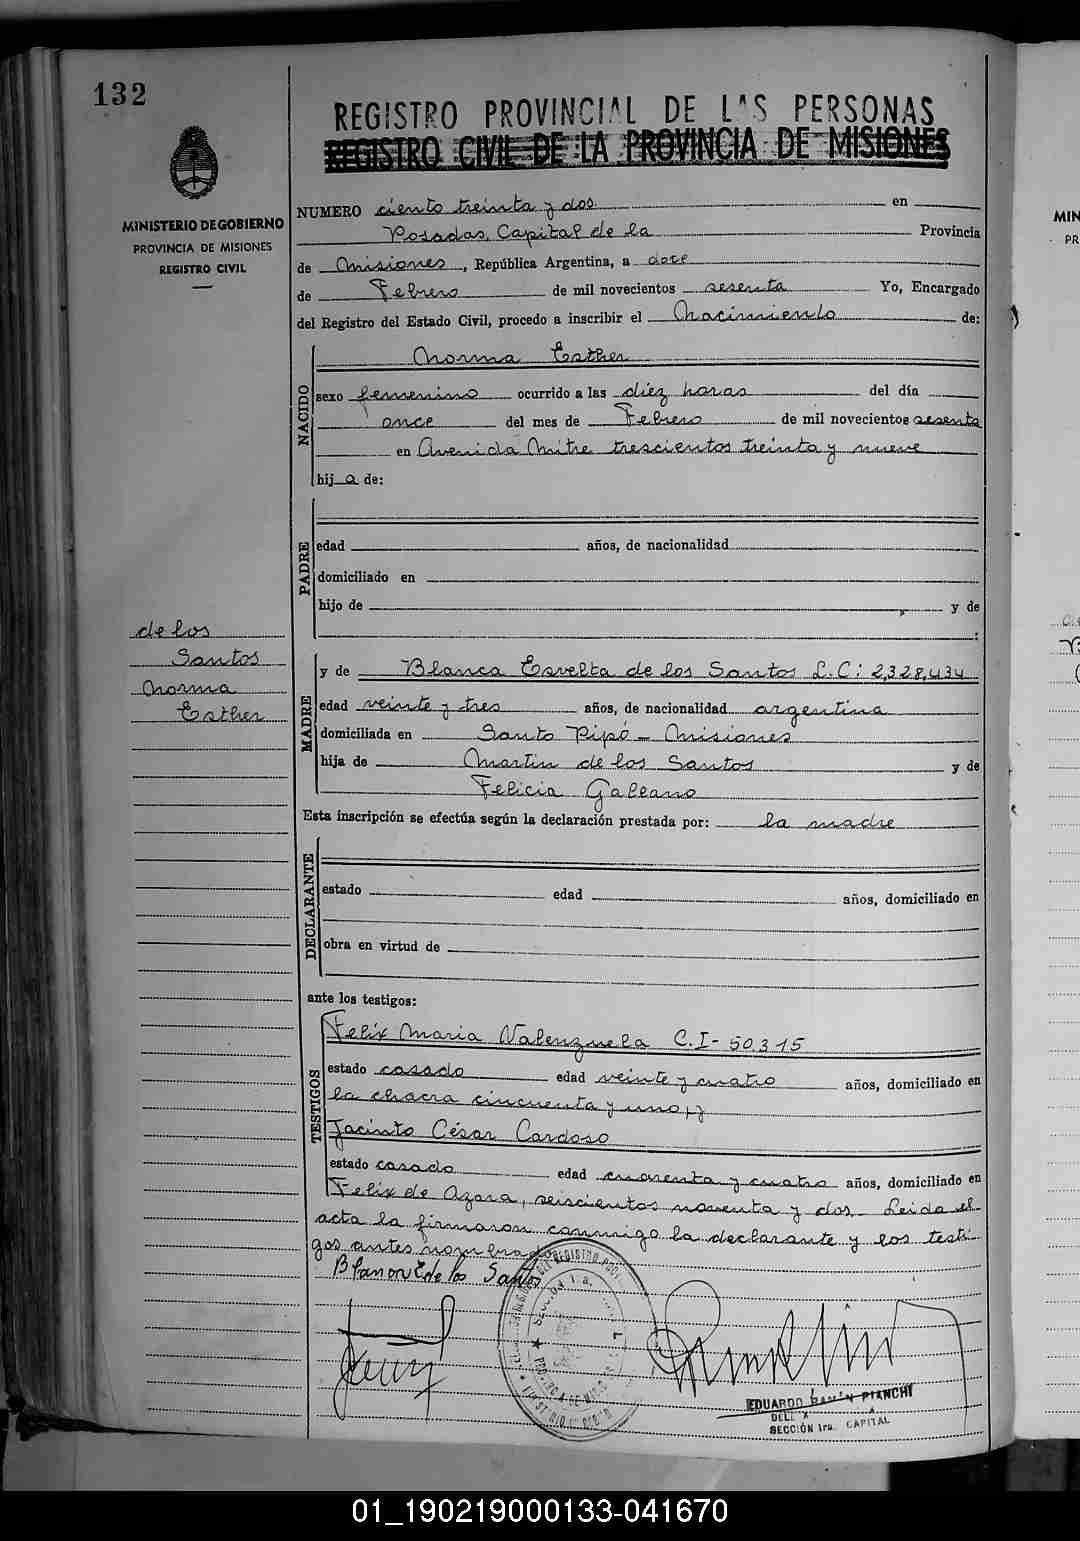 132
REGISTRO PROVINCIAL DE LAS PERSONAS
REGISTRO CIVIL DE LA PROVINCIA DE MISIONES
MINISTERIO DE GOBIERNO
PROVINCIA DE MISIONES
REGISTRO CIVIL
NUMERO ciento treinta y dos en
Posadas, Capital de la Provincia
de Misiones, República Argentina, a doce
de Febrero de mil novecientos sesenta Yo, Encargado
del Registro del Estado Civil, procedo a inscribir el Nacimiento de:
NACIDO
Norma Esther
sexo femenino ocurrido a las diéz horas del día
once del mes de Febrero de mil novecientos sesenta
en Avenida Mitre trescientos treinta y nueve
hija de:
PADRE
edad años, de nacionalidad
domiciliado en
hijo de y de
:
de los
Santos
Norma
Esther
MADRE
y de Blanca Esvelta de los Santos L.C: 2,328,434
edad veinte y tres años, de nacionalidad argentina
domiciliada en Santo Pipó - Misiones
hija de Martin de los Santos y de
Felicia Galeano
Esta inscripción se efectúa según la declaración prestada por: la madre
DECLARANTE
estado edad años, domiciliado en
obra en virtud de
ante los testigos:
TESTIGOS
Felix Maria Valenzuela C.I- 50.315
estado casado edad veinte y cuatro años, domiciliado en
la chacra cincuenta y uno, y
Jacinto César Cardoso
estado casado edad cuarenta y cuatro años, domiciliado en
Felix de Azara, seiscientos noventa y dos - Leida el
acta la firmaron conmigo la declarante y los testi-
gos antes nombrados
Blanca E de los Santos
EDUARDO RAMÓN PIANCHI
SECCIÓN 1ra. CAPITAL
01_190219000133-041670